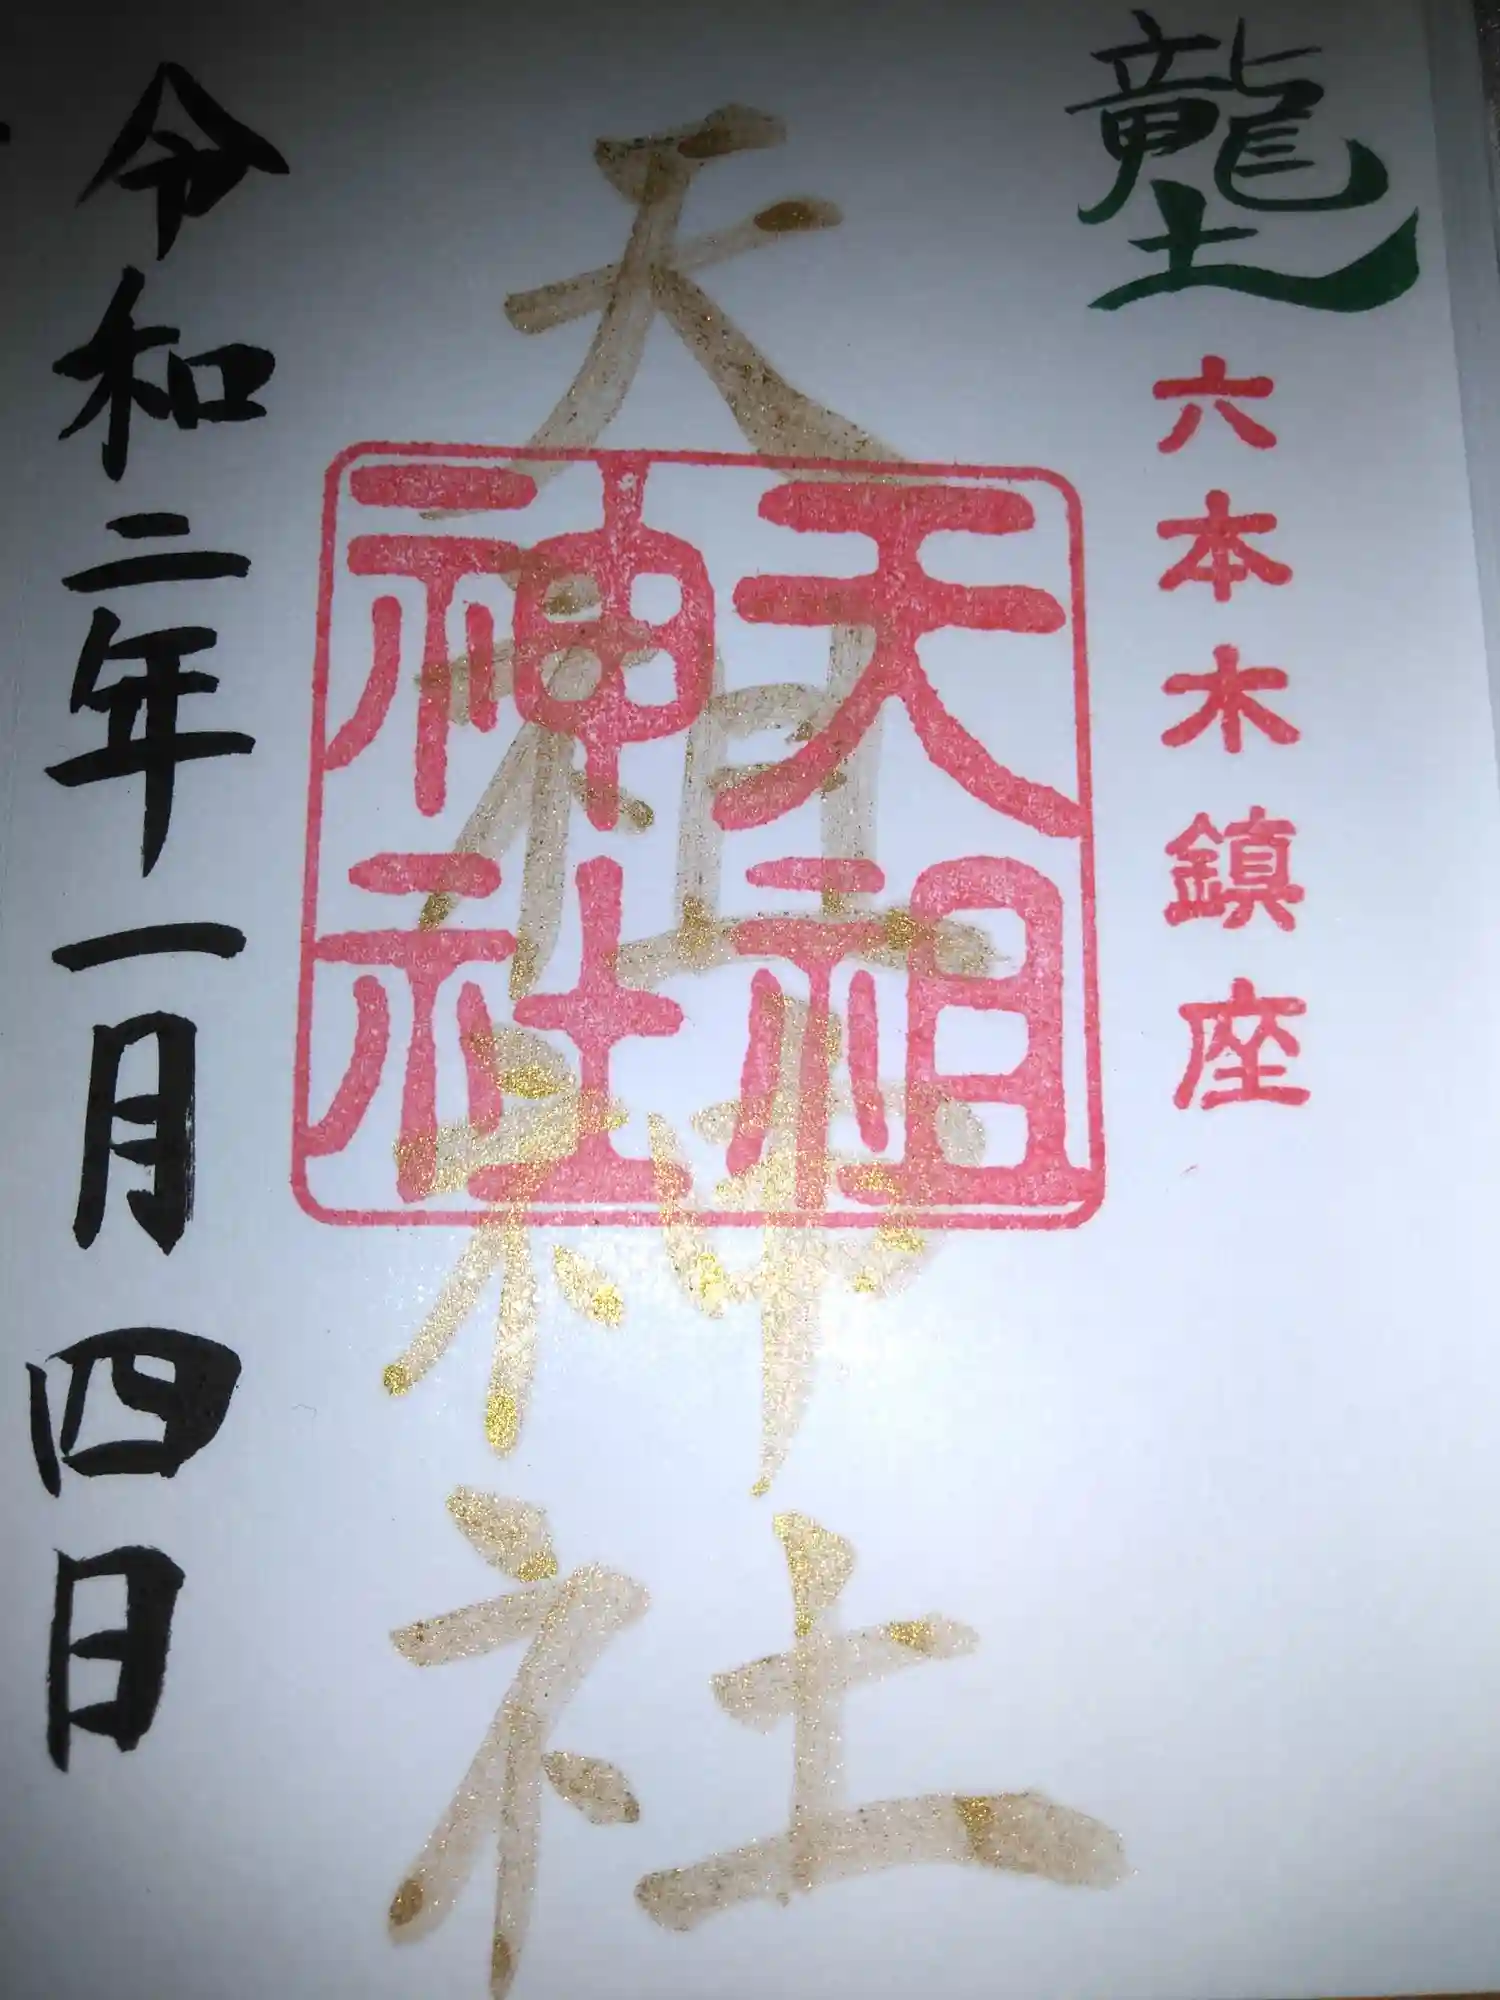 龍土
六本木鎮座
天祖神社
天祖
神社
令和二年一月四日